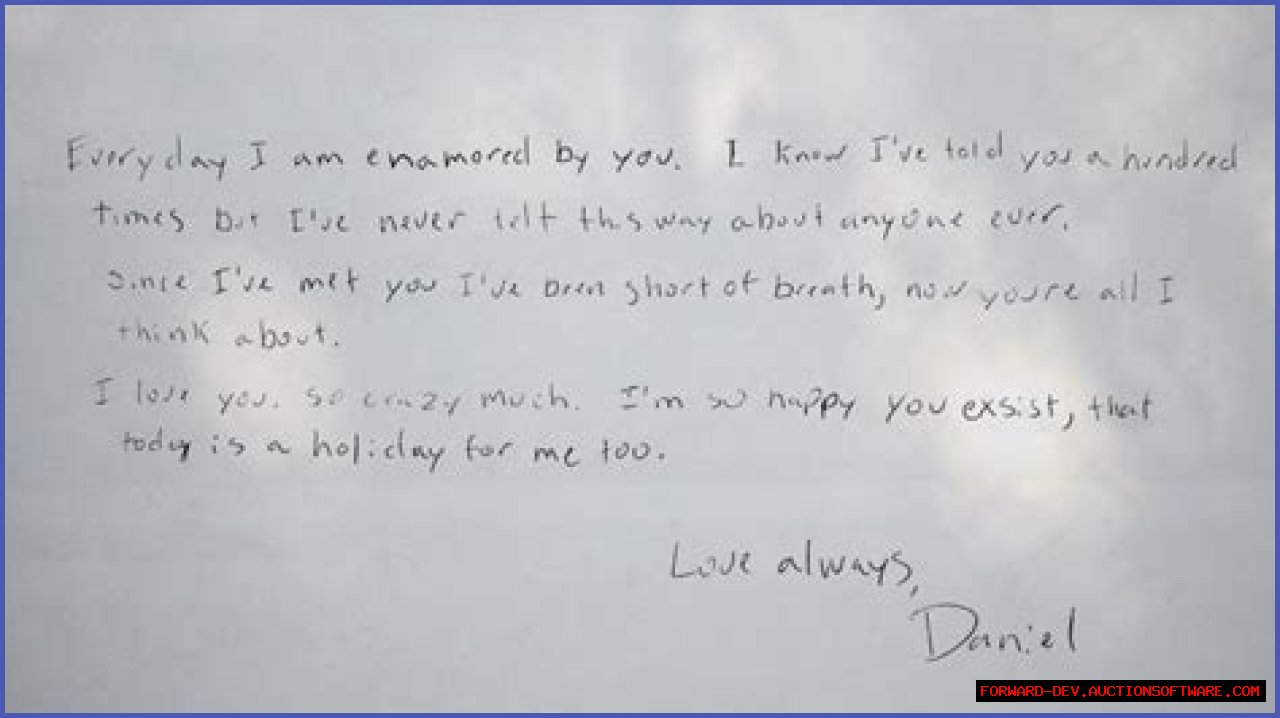 Everyday I am enamored by you. I know I've told you a hundred
times but I've never felt this way about anyone ever.
Since I've met you I've been short of breath, now youre all I
think about.
I love you. so crazy much. I'm so happy you exsist, that
today is a holiday for me too.
Love always,
Daniel
FORWARD-DEV.AUCTIONSOFTWARE.COM